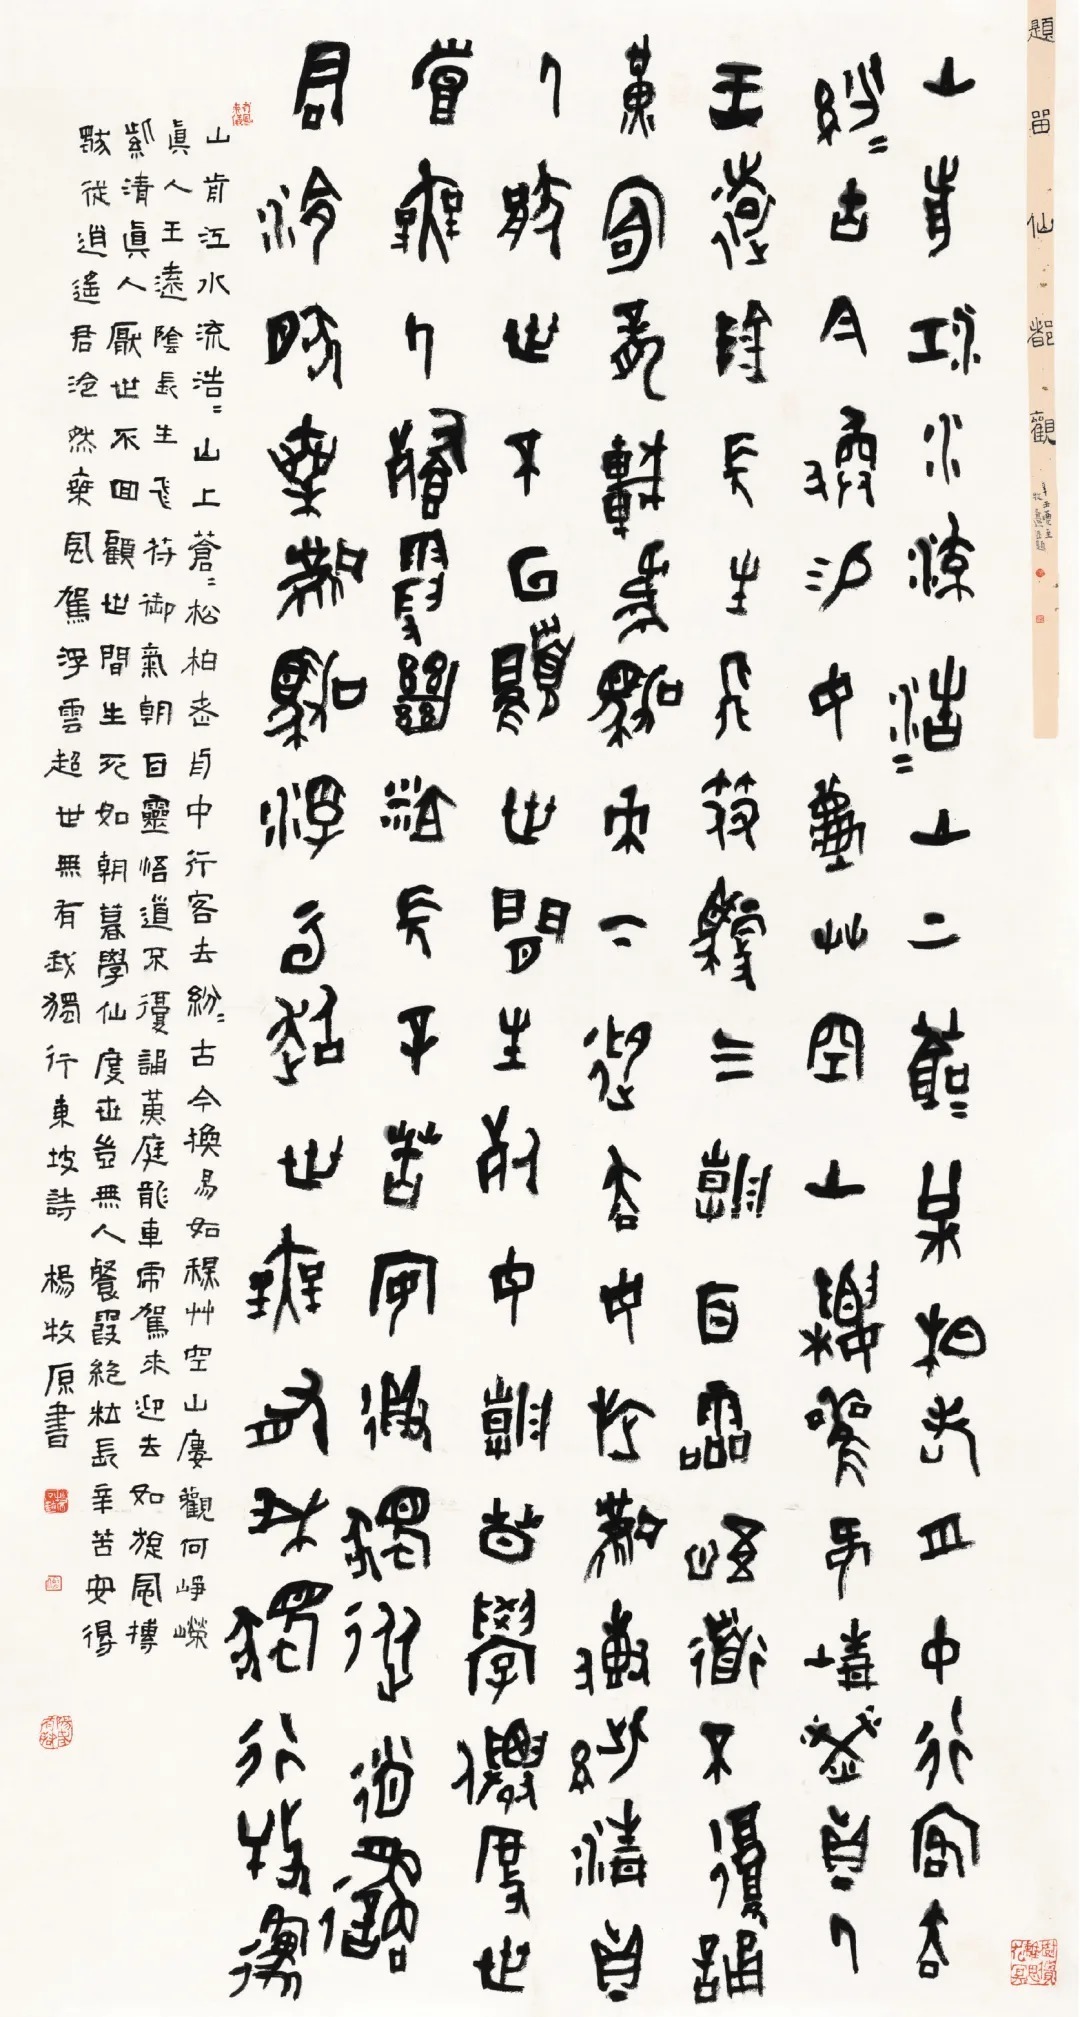 題留仙都觀
山前江水流浩=山上蒼=松柏老舟中行客去
紛=古今換易如秋艸空山樓觀何崢嶸真人
王遠陰長生飛符御气朝百靈悟道不復誦
黃庭龍車虎駕來下迎去如旋風摶紫清真
人厭世不回顧世間生死如朝暮學僊度世
豈無人餐霞絕粒長辛苦安得獨從逍遙
君泠然乘風駕浮雲超世無有我獨行牧原
山前江水流浩=山上蒼=松柏老舟中行客去紛=古今換易如穐艸空山廔觀何崢嶸
眞人王遠陰長生飛符御氣朝百靈悟道不復誦黃庭龍車虎駕來迎去如旋風摶
紫清眞人厭世不回顧世間生死如朝暮學仙度世豈無人餐霞絕粒長辛苦安得
獨從逍遙君泠然乘風駕浮雲超世無有我獨行東坡詩 楊牧原書